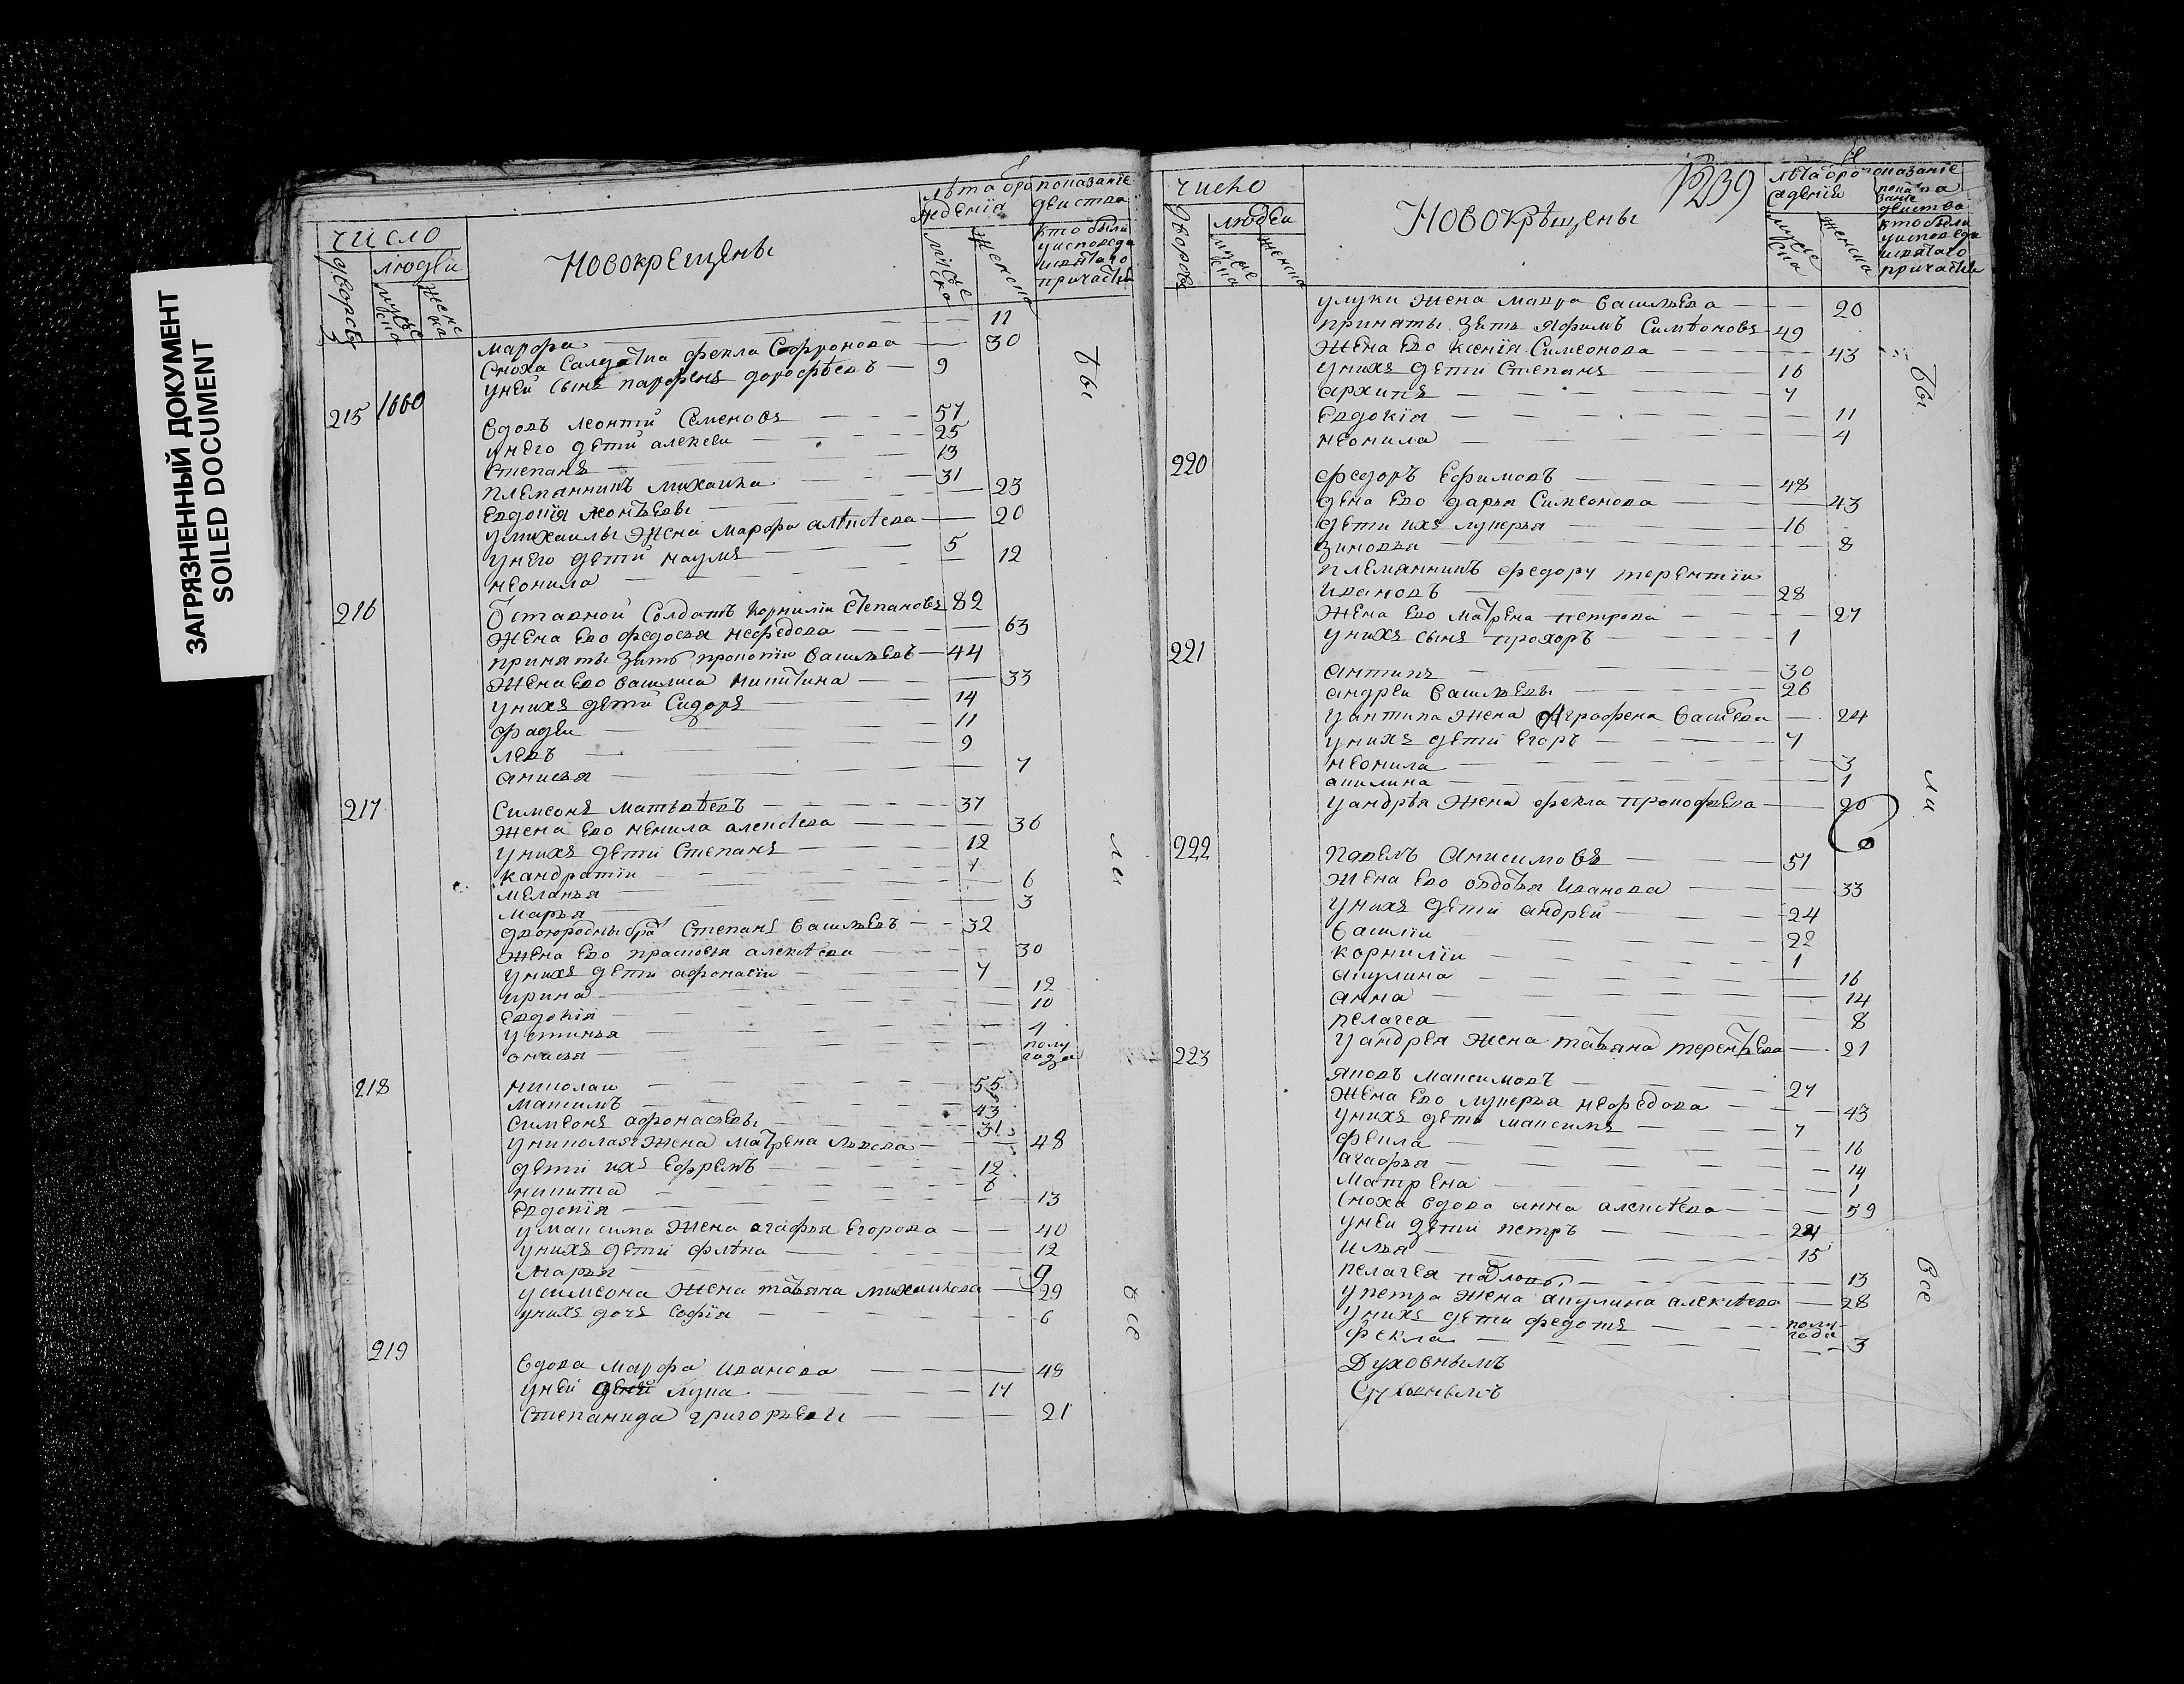 ЗАГРЯЗНЕННЫЙ ДОКУМЕНТ
SOILED DOCUMENT
число
дворовъ
людеи
мужеска
женска
Новокрещены
лѣта ѿ рождения
мужеска
женска
показание действа
кто были у исповеди и святаго причастия
марфа — 11
Сноха Салдатка фекла Софронова — 30
у неи сынъ парфенъ дорофѣевъ — 9
215 1660
вдовъ леонтий Семеновъ — 57
у него дети алексеи — 25
Степанъ — 13
племянникъ михаила — 31
Евдокия леонтьевы — 23
у михаилы жена марфа алексѣева — 20
у него дети наумъ — 5
неонила — 12
216 Отставной Солдатъ корнилии Степановъ 82
жена Ево федосья нефедова — 63
приняты зять прокопии васильевъ — 44
жена Ево василиса никитина — 33
у нихъ дети Сидоръ — 14
фадеи — 11
левъ — 9
анисья — 7
217 Симеонъ матвѣевъ — 37
жена Ево ненила алексѣева — 36
у нихъ дети Степанъ — 12
кандратии — 7
меланья — 6
марья — 3
двоюродныи братъ Степанъ васильевъ — 32
жена Ево прасковья алексѣева — 30
у нихъ дети афонасии — 7
ирина — 12
Евдокия — 10
устинья — 7
онисья — полугода
218 николаи — 55
максимъ — 43
Симеонъ афонасьевы — 31
у николая жена матрена львова — 48
дети ихъ Ефремъ — 12
никита — 6
Евдокия — 13
у максима жена агафья Егорова — 40
у нихъ дети флена — 12
марья — 9
у симеона жена татьяна михаилова — 29
у нихъ дочь софия — 6
219
вдова марфа иванова — 48
у неи лука — 17
Степанида григорьевы — 21
бы
ли
все
число
дворовъ
людеи
мужеска
женска
Новокрѣщены
1239
лѣта ѿ рождения
мужеска
женска
показание действа
кто были у исповеди и святаго причастия
у луки жена мавра васильева — 20
приняты зять Яфимъ Симѣоновъ — 49
жена Ево Ксения Симеонова — 43
у нихъ дети Степанъ — 16
архипъ — 7
Евдокия — 11
неонила — 4
220
федоръ Ефимовъ — 48
жена Ево дарья Симеонова — 43
дети ихъ лукерья — 16
зиновья — 8
племянникъ федору терентии
ивановъ — 28
жена Ево матрена петрова — 27
у нихъ сынъ прохоръ — 1
221
антипъ — 30
андреи васильевы — 26
у антипа жена Агрофена васильева — 24
у нихъ дети Егоръ — 7
неонила — 3
акилина — 1
у андрѣя жена фекла прокофьева — 20
222
Павелъ Анисимовъ — 51
жена Ево овдотья иванова — 33
у нихъ дети андреи — 24
василии — 22
корнилии — 1
акулина — 16
анна — 14
пелагея — 8
у андрея жена татьяна терентьева — 21
223
яковъ максимовъ — 27
жена Ево лукерья нефедова — 43
у нихъ дети максимъ — 7
фекла — 16
агафья — 14
матрена — 1
Сноха вдова анна алексѣева — 59
у неи дети петръ — 24
илья — 15
пелагея павловы — 13
у петра жена акулина алексѣева — 28
у нихъ дети федотъ — полугода
фекла — 3
Духовнымъ
бы
ли
все